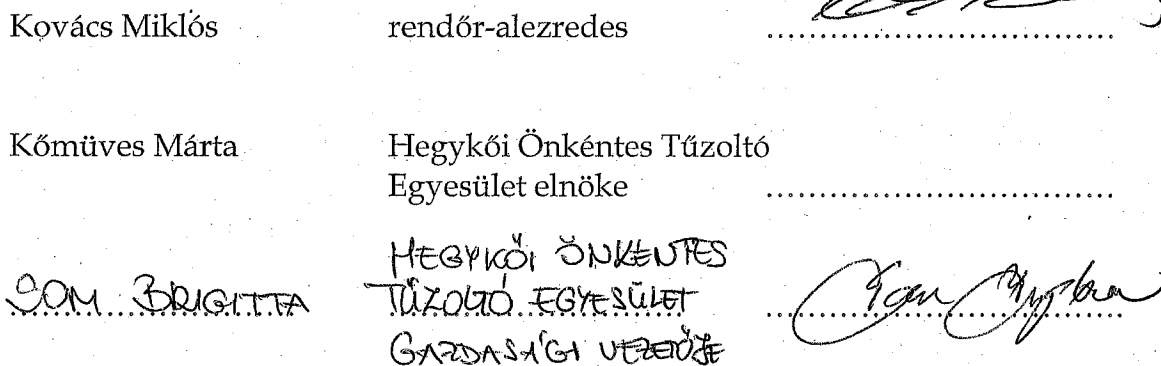 Kovács Miklós rendőr-alezredes ..................................
Kőmüves Márta Hegykői Önkéntes Tűzoltó
Egyesület elnöke ..................................
HEGYKŐI ÖNKÉNTES
SOM BRIGITTA TŰZOLTÓ EGYESÜLET
GAZDASÁGI VEZETŐJE